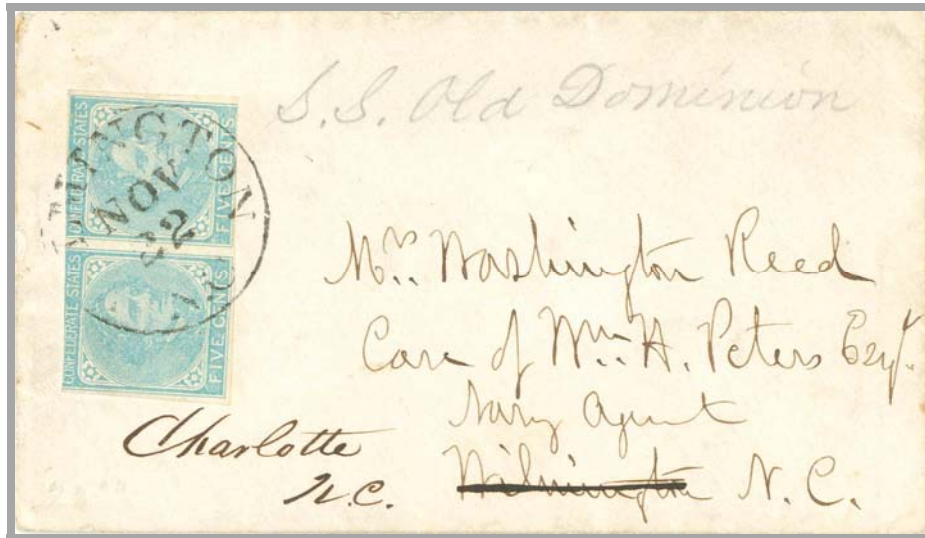 S.S. Old Dominion
CONFEDERATE STATES
FIVE CENTS
NOV
22
CONFEDERATE STATES
FIVE CENTS
Mrs. Washington Reed
Care of Wm. H. Peters Esqr.
Navy Agent
Wilmington N.C.
Charlotte
N.C.